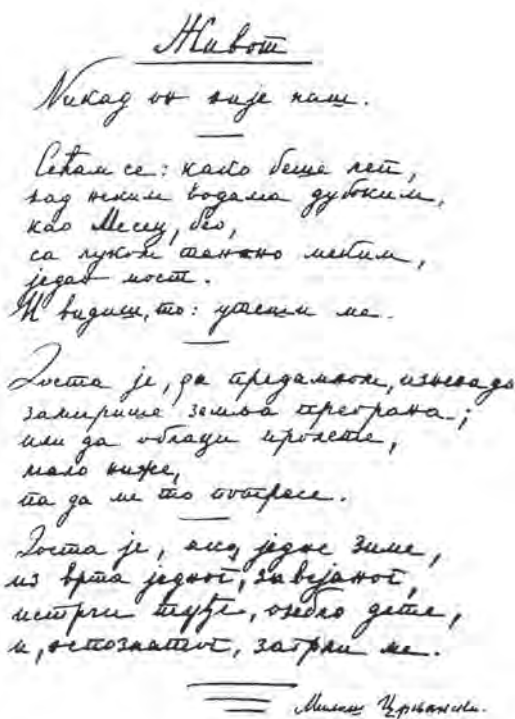 Живот
Никад он није наш.
Сећам се: како беше леп,
над неким водама дубоким,
као Месец, бео,
са луком танано меким,
један мост.
И видиш, то: утеши ме.
Доста је, да предамном, изненада
замирише земља преорана;
или да облаци пролете,
мало ниже,
па да ме то потресе.
Доста је, ако, једне зиме,
из врта једног, завејаног,
истрчи туђе, озебло дете,
и, загрли ме.
Милош Црњански.